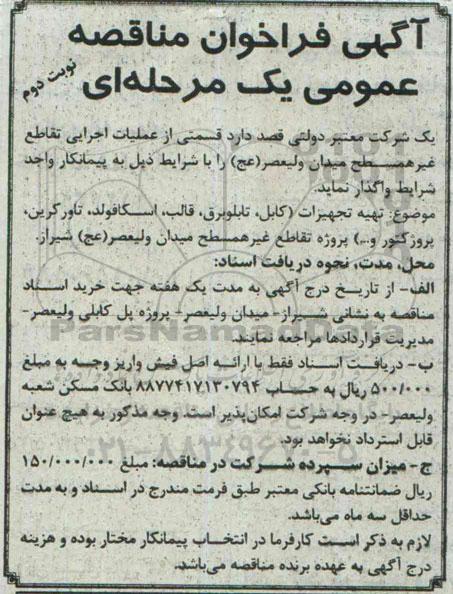 آگهی فراخوان مناقصه
عمومی یک مرحله‌ای
نوبت دوم
یک شرکت معتبر دولتی قصد دارد قسمتی از عملیات اجرایی تقاطع
غیرهمسطح میدان ولیعصر(عج) را با شرایط ذیل به پیمانکار واجد
شرایط واگذار نماید.
موضوع: تهیه تجهیزات (کابل، تابلوبرق، قالب، اسکافولد، تاورکرین،
پروژکتور و...) پروژه تقاطع غیرهمسطح میدان ولیعصر(عج) شیراز.
محل، مدت، نحوه دریافت اسناد:
الف- از تاریخ درج آگهی به مدت یک هفته جهت خرید اسناد
مناقصه به نشانی شیراز- میدان ولیعصر- پروژه پل کابلی ولیعصر-
مدیریت قراردادها مراجعه نمایند.
ParsNamadData
ب- دریافت اسناد فقط با ارائه اصل فیش واریز وجه به مبلغ
۵۰۰/۰۰۰ ریال به حساب ۸۸۷۷۴۱۷۱۳۰۷۹۴ بانک مسکن شعبه
ولیعصر- در وجه شرکت امکان‌پذیر است. وجه مذکور به هیچ عنوان
قابل استرداد نخواهد بود.
۰۲۱-۸۸۳۴۹۶۷۰-۵
ج- میزان سپرده شرکت در مناقصه: مبلغ ۱۵۰/۰۰۰/۰۰۰
ریال ضمانتنامه بانکی معتبر طبق فرمت مندرج در اسناد و به مدت
حداقل سه ماه می‌باشد.
لازم به ذکر است کارفرما در انتخاب پیمانکار مختار بوده و هزینه
درج آگهی به عهده برنده مناقصه می‌باشد.